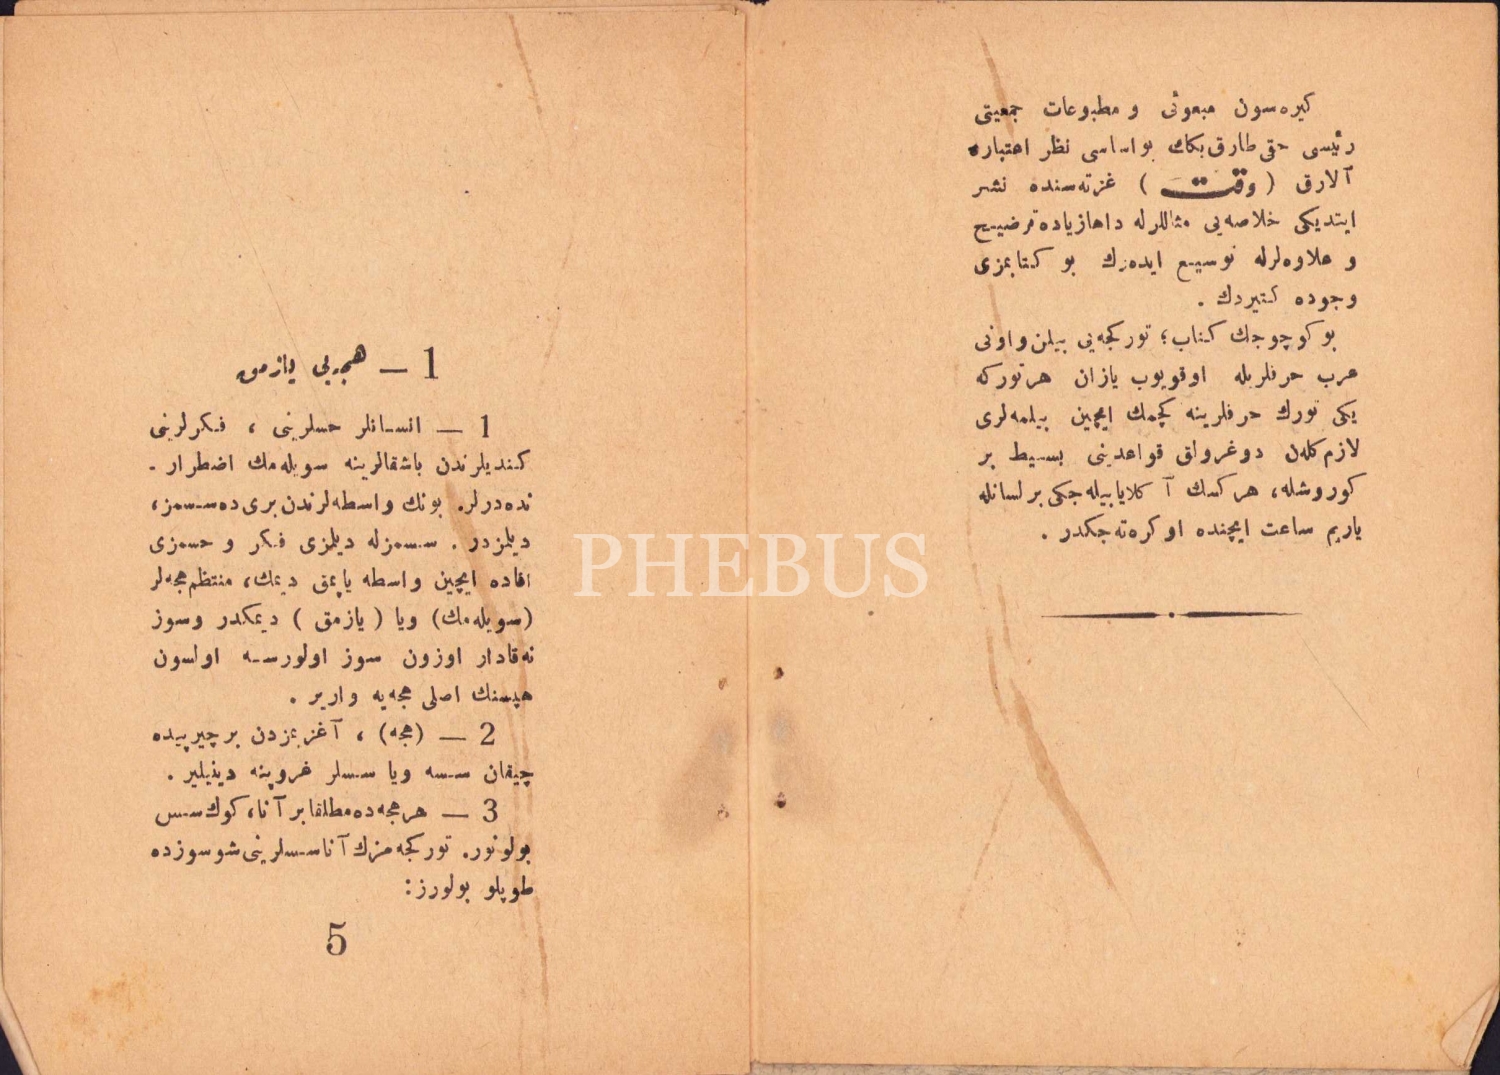 كيره‌سون مبعوثی و مطبوعات جمعيتی
رئيسی حقی طارق بكك بو اساسی نظر اعتباره
آلارق ( وقت ) غزته‌سنده نشر
ايتديكی خلاصه‌یی مثاللرله داها زياده توضيح
و علاوه‌لرله توسيع ايده‌رك بو كتابمزی
وجوده كتيردك .
بو كوچوجك كتاب؛ توركجه‌یی بيلن و اونی
عرب حرفلريله اوقويوب يازان هر توركه
يكی تورك حرفلرينه كچمك ايچين بيلمه‌لری
لازم كلن دوغرولق قواعدينی بسيط بر
كوروشله، هركسك آكلايابيله‌جكی بر لسانله
ياريم ساعت ايچنده اوكره‌ته‌جكدر .
1 — هجه‌یی يازمق
1 — انسانلر حسلرينی ، فكرلرينی
كنديلرندن باشقالرينه سويله‌مك اضطرار -
نده‌درلر. بونك واسطه‌لرندن بری ده سسمز،
ديلمزدر . سسمزله ديلمزی فكر و حسمزی
افاده ايچين واسطه ياپمق ديمك، منتظم هجه‌لر
(سويله‌مك) ويا ( يازمق ) ديمكدر وسوز
نه‌قادار اوزون سوز اولورسه اولسون
هپسنك اصلی هجه‌يه وارير .
2 — (هجه) ، آغزيمزدن بر چيرپيده
چيقان سسه ويا سسلر غروپنه دينيلير .
3 — هر هجه‌ده مطلقا بر آنا، كوك سس
بولونور. توركجه‌مزك آنا سسلرينی شو سوزده
طوپلو بولورز:
5
PHEBUS